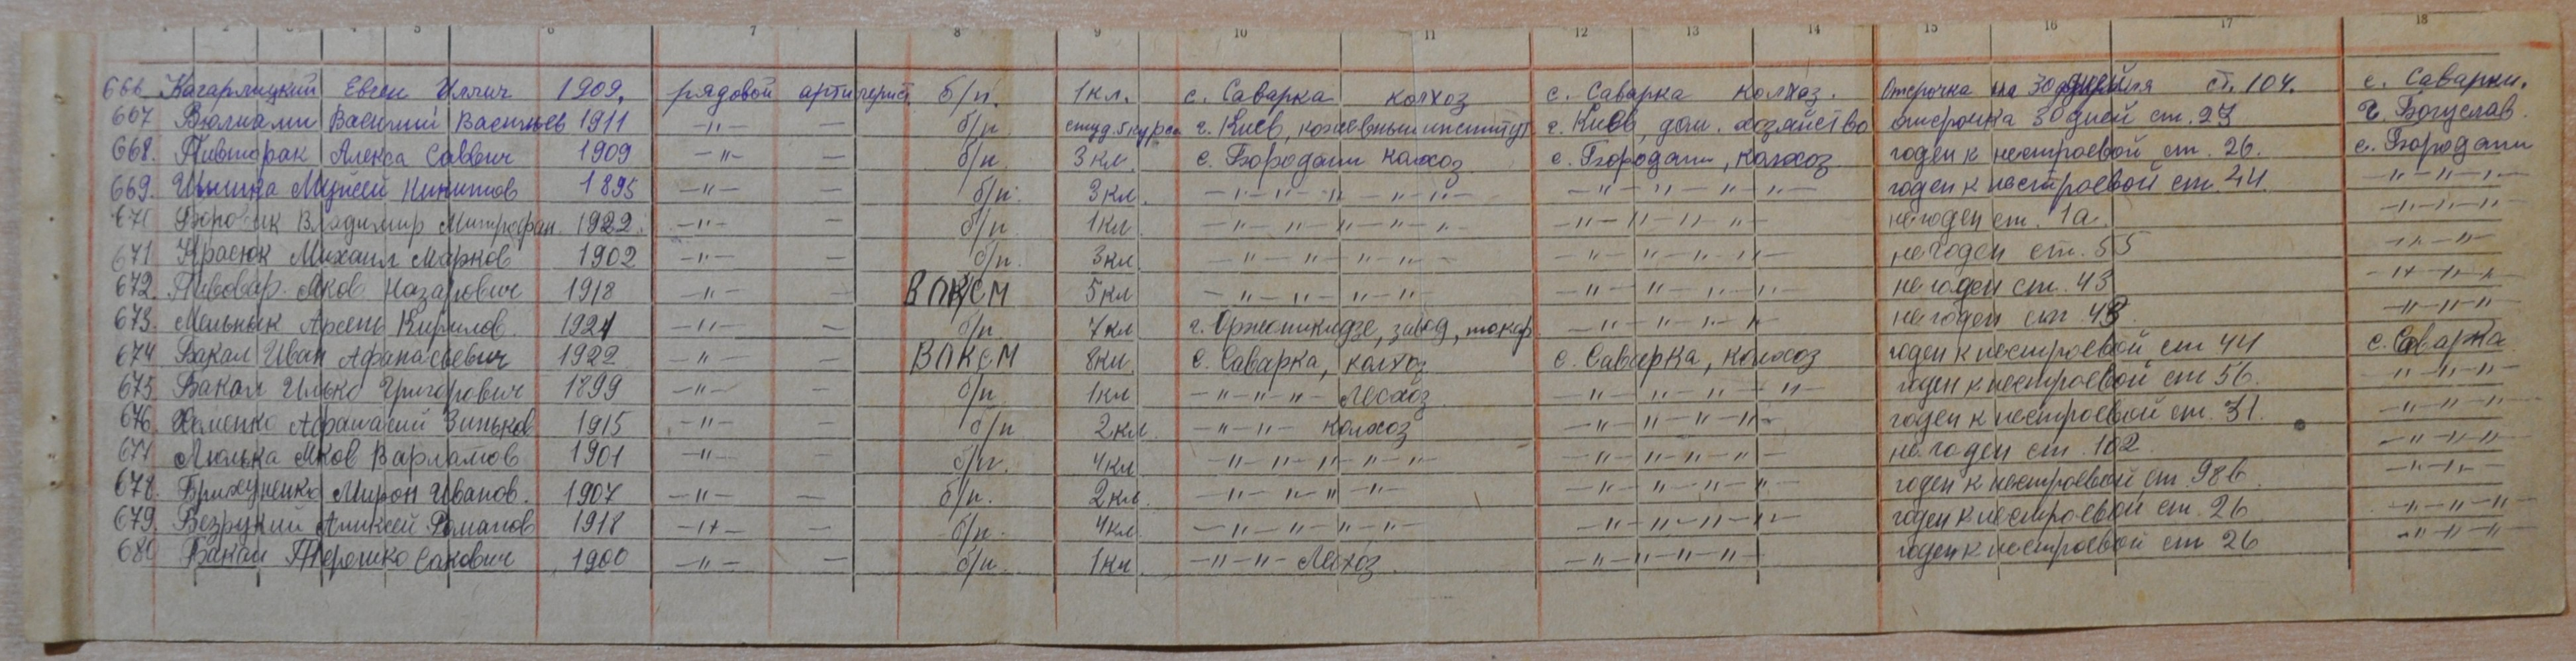 1 2 3 4 5 6 7 8 9 10 11 12 13 14 15 16 17 18
666. Кагарлицкий Евген Иллич 1909. рядовой артилерист б/п. 1 кл. с. Саварка колхоз с. Саварка колхоз. Отсрочка на 30 дней ст. 104. с. Саварки.
667 Василий Васильев 1911 –"– – б/п студ. 5 курса г. Киев, кожевенный институт г. Киев, дом. хозяйство отсрочка 30 дней ст. 29 г. Богуслав.
668. Пивторак Алекса Саввич 1909 –"– – б/п. 3 кл. с. Бородани колхоз с. Бородани, колхоз годен к нестроевой ст. 26. с. Бородани
669. Мусией Никитов 1895 –"– – б/п. 3 кл. –"–"–"–"–"– –"–"–"–"– годен к нестроевой ст. 44. –"–"–"–
671 Боровик Владимир Митрофан. 1922. –"– – б/п 1 кл –"–"–"–"–"– –"–"–"–"– не годен ст. 1а. –"–"–"–
671 Красюк Михаил Марков 1902 –"– – б/п. 3 кл –"–"–"–"–"– –"–"–"–"– не годен ст. 55 –"–"–
672. Пивовар Яков Назарович 1918 –"– – ВЛКСМ 5 кл –"–"–"–" –"–"–"–"– не годен ст. 43 –"–"–"–
673. Мельник Арсень Кирилов. 1921 –"– – б/п 7 кл г. Орженикидзе, завод, токар –"–"–"–"– не годен ст. 43. –"–"–"
674 Бакал Иван Афанасьевич 1922 –"– – ВЛКСМ 8 кл. с. Саварка, колхоз с. Саварка, колхоз годен к нестроевой, ст 44 с. Саварка
675. Бакал Илько Григорович 1899 –"– – б/п 1 кл –"–"–"– лесхоз –"–"–"–"– годен к нестроевой ст 56. –"–"–"–
676. Хоменко Афанасий Зиньков 1915 –"– – б/п 2 кл. –"–"– колхоз –"–"–"–"– годен к нестроевой ст. 31. –"–"–"–
677 Люлька Яков Варламов 1901 –"– – б/п. 4 кл –"–"–"–"–"– –"–"–"–"– не годен ст. 102. –"–"–"–
678. Мирон Иванов. 1907 –"– – б/п. 2 кл. –"–"–"–"– –"–"–"–"– годен к нестроевой, ст. 98б. –"–"–
679. Безрукий Алексей Романов 1918 –"– – б/п. 4 кл. –"–"–"–"–"– –"–"–"–"– годен к нестроевой ст. 26 –"–"–"–"
680 Бакал Терешко Сакович 1900 –"– – б/п. 1 кл. –"–"– Лесхоз. –"–"–"–"– годен к нестроевой ст 26 –"–"–"–